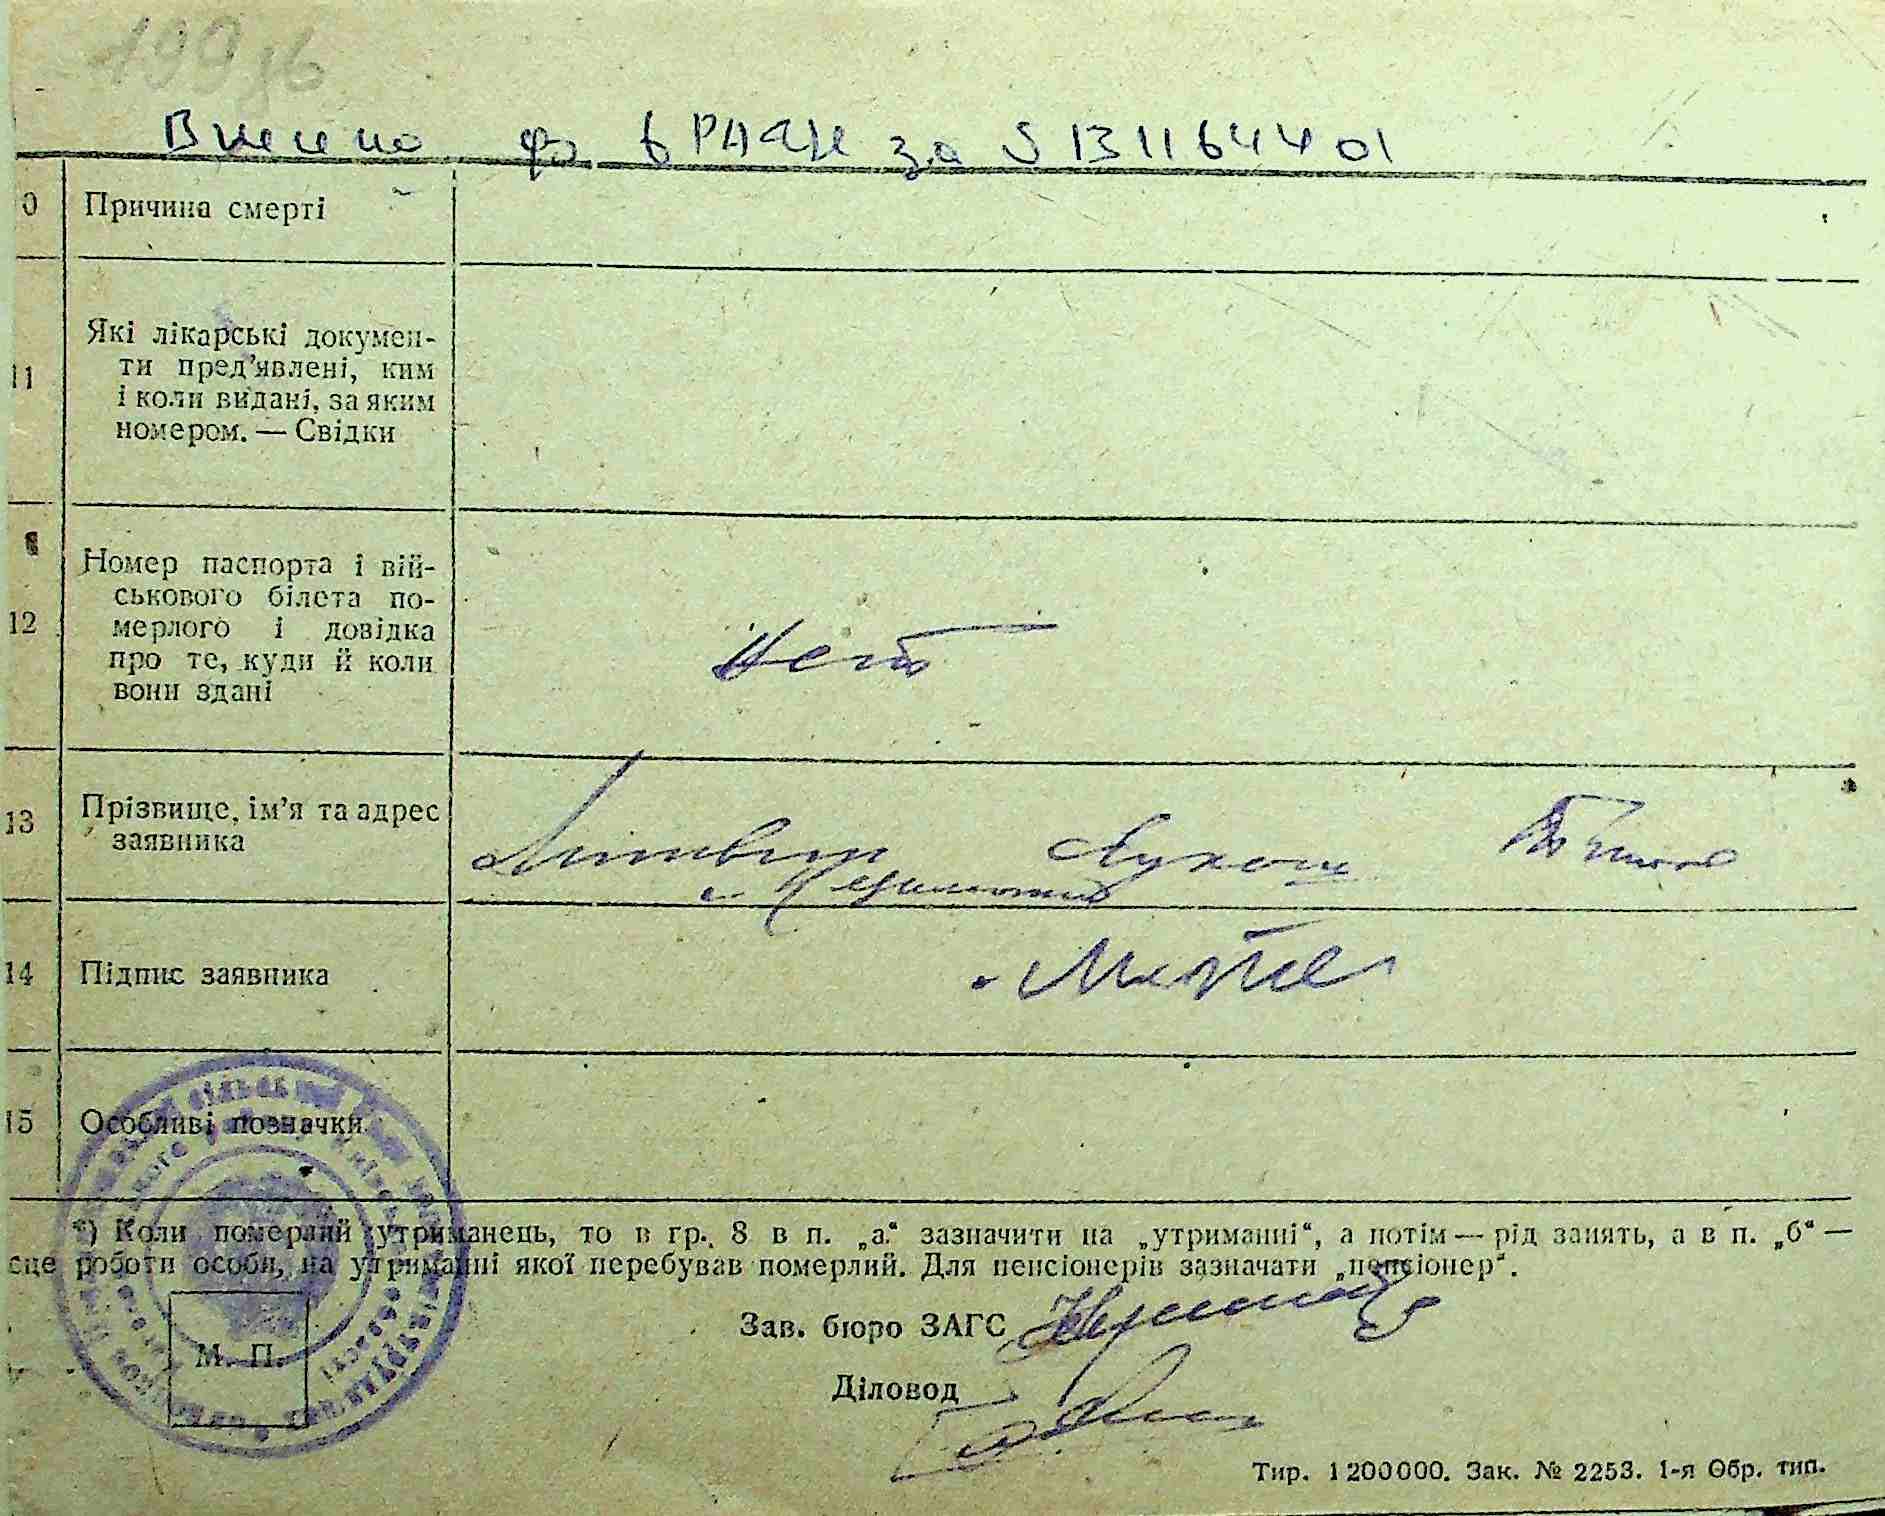 199зв
Внесено в РАЦС за S 131164401
0 Причина смерті
11 Які лікарські докумен-
ти пред'явлені, ким
і коли видані, за яким
номером. — Свідки
12 Номер паспорта і вій-
ськового білета по-
мерлого і довідка
про те, куди й коли
вони здані
Нет
13 Прізвище, ім'я та адрес
заявника
Литвин
с.
14 Підпис заявника
15 Особливі позначки
*) Коли померлий утриманець, то в гр. 8 в п. „а“ зазначити на „утриманні“, а потім — рід занять, а в п. „б“ —
сце роботи особи, на утриманні якої перебував померлий. Для пенсіонерів зазначати „пенсіонер“.
Зав. бюро ЗАГС
Діловод
М. П.
Тир. 1200000. Зак. № 2253. 1-я Обр. тип.